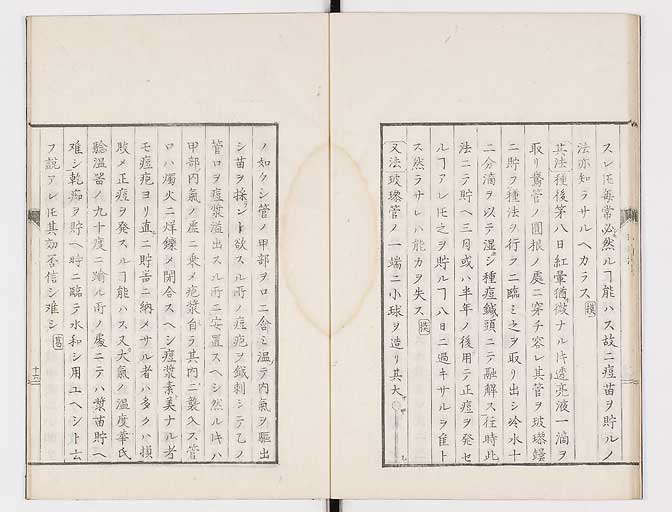 スレ𪜈毎常必然ルヿ能ハス故ニ痘苗ヲ貯ルノ
法亦知ラサルヘカラス 撲
其法種後第八日紅暈猶微ナル時透亮液一滴ヲ
取リ鵞管ノ圓根ノ處ニ穿チ容レ其管ヲ玻瓈罎
ニ貯ヲ種法ヲ行フニ臨ミ之ヲ取リ出シ冷水十
二分滴ヲ以テ湿シ種痘鍼頭ニテ融解ス往時此
法ニテ貯ヘ三月或ハ半年ノ後用テ正痘ヲ発セ
ルヿアレ𪜈之ヲ貯ルヿ八日ニ過キサルヲ佳ト
ス然ラサレハ能力ヲ失ス 撲
又法玻瓈管ノ一端ニ小球ヲ造リ其大
ノ如クシ管ノ甲部ヲ口ニ含ミ温テ内氣ヲ驅出
シ苗ヲ採ント欲スル所ノ痘疱ヲ鍼刺シテ乙ノ
管口ヲ痘漿溢出スル所ニ安置スヘシ然ル時ハ
甲部内氣ノ虚ニ乗メ疱漿自ラ其内ニ襲入ス管
口ハ燭火ニ烊鑠メ閉合スヘシ痘漿素美ナル者
モ痘疱ヨリ直ニ貯器ニ納メサル者ハ多クハ損
敗メ正痘ヲ発スルヿ能ハス又大氣ノ温度華氏
驗温器ノ九十度ニ踰ル所ノ處ニテハ漿苗貯ヘ
难シ乾痂ヲ貯ヘ時ニ臨テ水和シ用ユヘシト云
フ説アレ𪜈其効否信シ难シ
十六